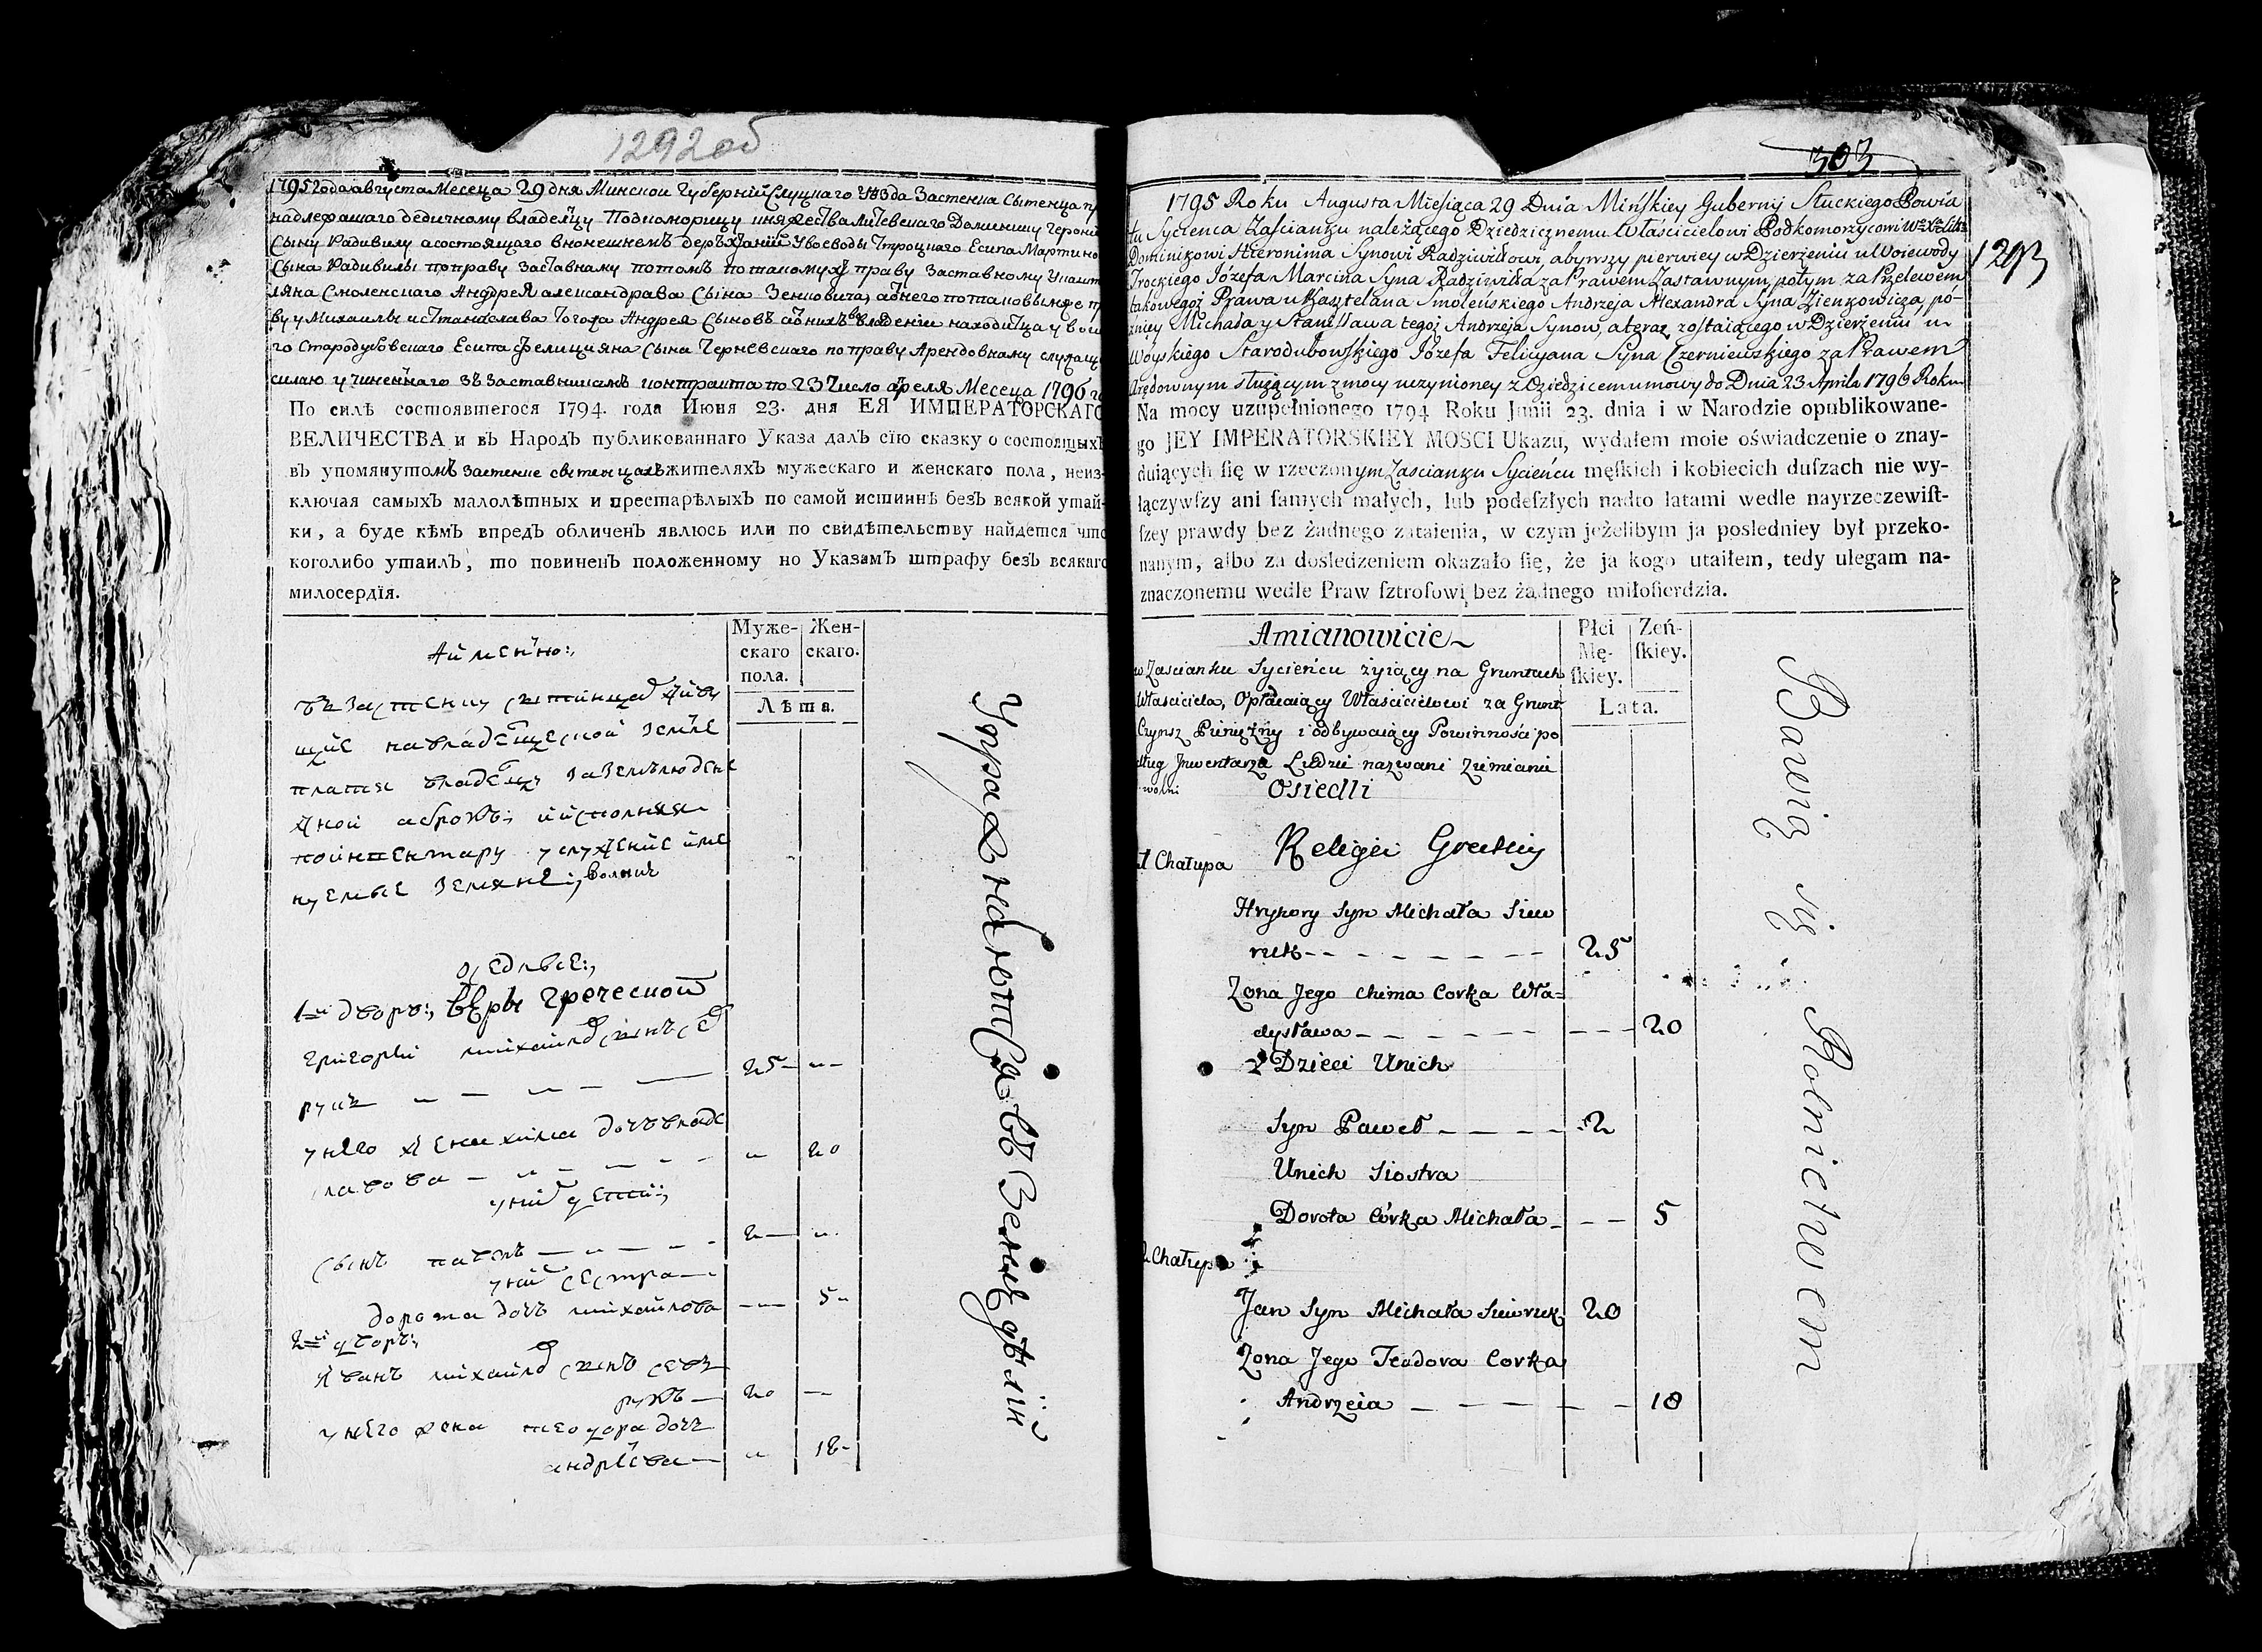 1292об
1795 года августа Месеца 29 дня Минской Губернiй Слуцкаго Уѣзда Застенка Сытенца пр
надлежащаго дедичному владелцу Подкоморицу княжества Литевскаго Доминику Герони
Сыну Радивилу а состоящаго в нонешнемъ держанiй У воеводы Троцкаго Есипа Мартино
Сына Радивилы по праву заставному потомъ по такомужъ праву заставному У кашт
ляна Смоленскаго Андрея Александрава Сына Зенковича, а
ву у Михаилы и Станислава того жа Андрея Сыновъ а
го Стародубовскаго Есипа Фелицияна Сына Черневскаго по праву Арендовному служащ
силаю учиненнаго зъ заставникамъ контракта по 23 Число апреля Месеца 1796 го
По силѣ состоявшегося 1794. года Июня 23. дня ЕЯ ИМПЕРАТОРСКАГО
ВЕЛИЧЕСТВА и въ Народъ публикованнаго Указа далъ сїю сказку о состоящыхъ
въ упомянутомъ застенке сытенцахъ жителяхъ мужескаго и женскаго пола, неиз-
ключая самыхъ малолѣтных и престарѣлыхъ по самой истиннѣ безъ всякой утай-
ки, а буде кѣмъ впредъ обличенъ явлюсь или по свидѣтельству найдется что
коголибо утаилъ, то повиненъ положенному но Указамъ штрафу безъ всякаго
милосердїя.
Муже-
скаго
пола.
Жен-
скаго.
Лѣта.
А имен̃но:,
въ застенку сытинцах живу
щие на владелческой земле
платя владелцу за землю дене
жной аброкъ, и исполняя
по инвентару услужение име
нуемые земяне:, волние
оседлые:,
1й дворъ:, вѣры греческой
григорый михайлов сынъ се
рукъ 25
у него жена хима дочь владе
лавова 20
у них дети:,
сынъ павелъ 2
у них сестра
дорота дочь михайлова 5
2й дворъ:,
иванъ михайлов сынъ севе
рукъ 20
у него жена теодора дочь
андреева 18
Упражнаютса въ Земледѣлiй
303
1293
1795 Roku Augusta Miesiąca 29 Dnia Mińskiey Guberny Słuckiego Powia
tu Sycienca Zascianku należącego Dziedzicznemu Właścicielowi Podkomorzycowi Wo Xa Litt
Dominikowi Hieronima Synowi Radziwiłłowi, abywszy pierwiey w Dzierżeniu u Woiewody
Trockiego Józefa Marcina Syna Radziwiłła za Prawem Zastawnym, potym za Przelewem
takowegoż Prawa u Kasztelana Smoleńskiego Andrzeja Alexandra Syna Zienkowicza, pó-
zniey Michała y Stanisława tegoż Andrzeja Synow, a teraz zostaiącego w Dzierżeniu u
Woyskiego Starodubowskiego Józefa Felicyana Syna Czerniewskiego za Prawem
Arędownym służącym z mocy uczynioney z Dziedzicem umowy do Dnia 23 Aprila 1796 Roku
Na mocy uzupełnionego 1794 Roku Junii 23. dnia i w Narodzie opublikowane-
go JEY IMPERATORSKIEY MOSCI Ukazu, wydałem moie oświadczenie o znay-
duiących się w rzeczonym Zascianku Sycieńcu męſkich i kobiecich duſzach nie wy-
łączywſzy ani ſamych małych, lub podeſzłych nadto latami wedle nayrzeczewiſt-
ſzey prawdy bez żadnego zataienia, w czym jeżelibym ja posledniey był przeko-
nanym, albo za dosledzeniem okazało się, że ja kogo utaiłem, tedy ulegam na-
znaczonemu wedle Praw ſztrofowi bez żadnego miłosierdzia.
Płci
Mę-
ſkiey.
Zeń-
ſkiey.
Lata.
Amianowicie
w Zascianku Sycieńcu żyiący na Gruntach
Właściciela, Opłacaiący Właścicielowi za Grunt
Czynsz Pieniężny i odbywaiący Powinności po
dług Inwentarza Ludzie nazwani Ziemianie
wolni Osiedli
1 Chałupa Religii Greckiey
Hryhory Syn Michała Siew
ruk 25
Zona Jego Chima Corka Wła=
dysława 20
z Dzieci Unich
Syn Paweł 2
Unich Siostra
Dorota Córka Michała 5
2 Chałupa
Jan Syn Michała Siewruk 20
Zona Jego Teodora Corka
Andrzeia 18
Bawią się Rolnictwem